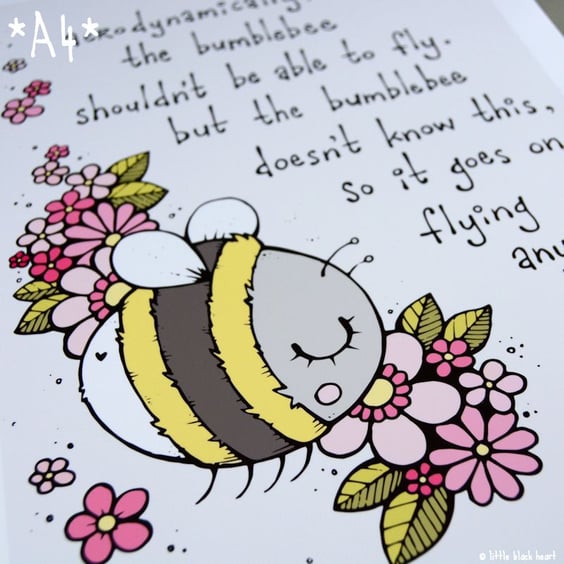 *A4*
aerodynamically,
the bumblebee
shouldn't be able to fly.
but the bumblebee
doesn't know this,
so it goes on
flying
any
© little black heart